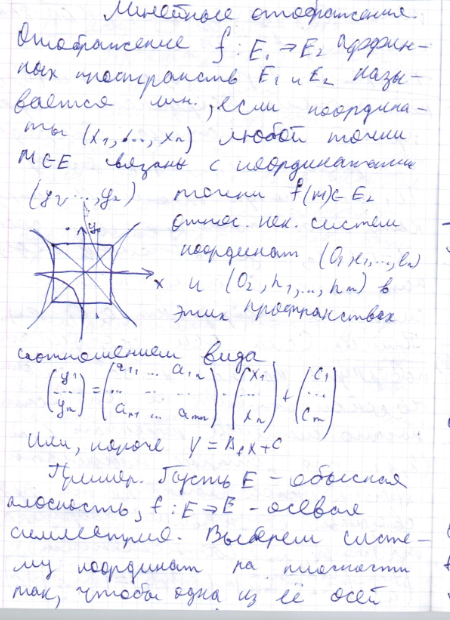 Линейные отображения.
Отображение f : E₁ → E₂ аффин-
ных пространств E₁ и E₂ назы-
вается лин., если координа-
ты (x₁, ..., xₙ) любой точки
M ∈ E связаны с координатами
(y₁, ..., yₙ) точки f(M) ∈ E₂
относ. нек. систем
y
координат (O₁, e₁, ..., eₙ)
x
и (O₂, h₁, ..., hₘ) в
этих пространствах
соотношением вида
(y₁ ... yₙ) = (a₁₁ ... a₁ₙ ... aₘ₁ ... aₘₙ) · (x₁ ... xₙ) + (c₁ ... cₘ)
Или, короче Y = A_f X + C
Пример. Пусть E – обычная
плоскость, f : E → E – осевая
симметрия. Выберем систе-
му координат на плоскости
так, чтобы одна из её осей